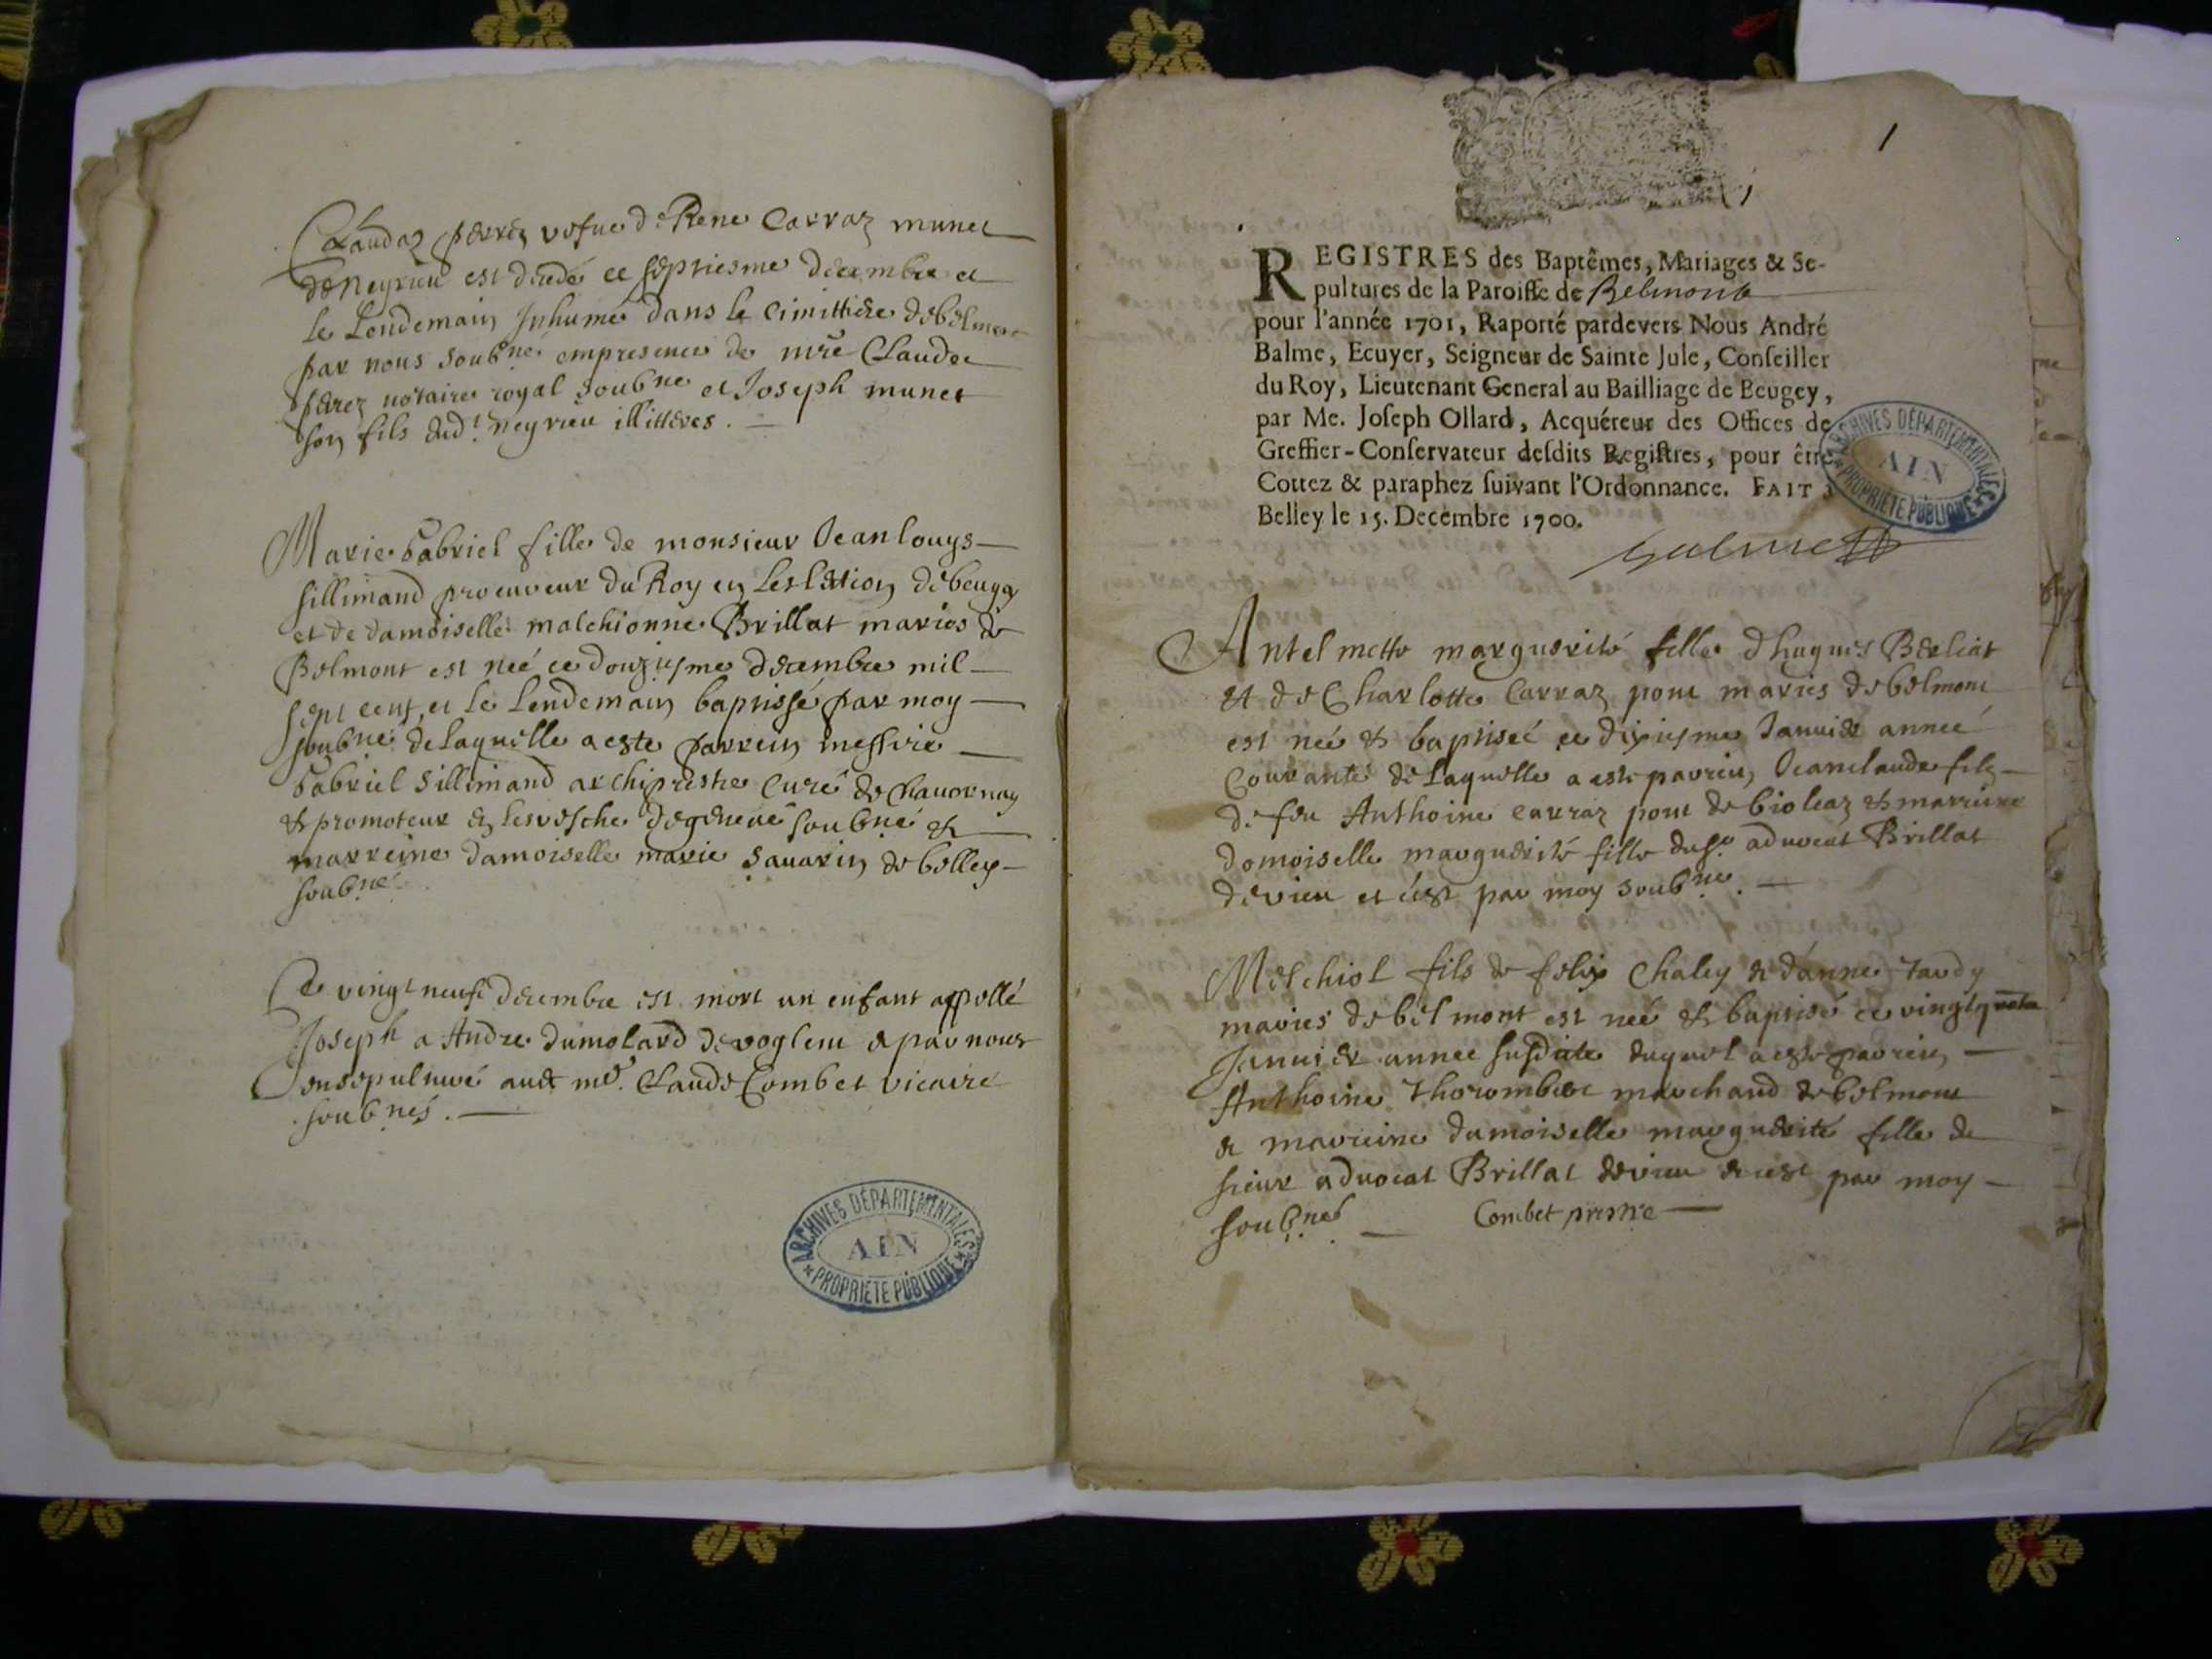 Claudaz perrez vefue de Rene Carraz munet
de Neyrieu est decedé ce septiesme decembre et
le Lendemain Inhumé dans le Cimittiere de belmont
par nous soubné en presence de mre Claude
perez notaire royal soubné et Joseph munet
son fils dud. neyrieu illitteres.
Marie Gabriel fille de monsieur Jean louys
sillimand procureur du Roy en Leslection de beugey
et de damoiselle malchionne Brillat maries de
Belmont est neé ce douziesme decembre mil
sept cent, et le Lendemain baptissé par moy
soubné de Laquelle a este parrein messire
Gabriel Sillimand archiprestre Curé de Chauornay
et promoteur en Lesvesche de geneue soubné et
marreine damoiselle marie Sauarin de belley
soubné
Ce vingt neuf decembre est mort un enfant appellé
Joseph a Andre dumolard de vogleni et par nous
ensepulturé auec mre. Claude Combet vicaire
soubnés.
ARCHIVES DÉPARTEMENTALES
AIN
PROPRIÉTÉ PUBLIQUE
1
REGISTRES des Baptêmes, Mariages & Se-
pultures de la Paroisse de Belmont
pour l'année 1701, Raporté pardevers Nous André
Balme, Ecuyer, Seigneur de Sainte Jule, Conseiller
du Roy, Lieutenant General au Bailliage de Beugey,
par Me. Joseph Ollard, Acquéreur des Offices de
Greffier-Conservateur desdits Registres, pour être
Cottez & paraphez suivant l'Ordonnance. FAIT à
Belley le 15. Decembre 1700.
ARCHIVES DÉPARTEMENTALES
AIN
PROPRIÉTÉ PUBLIQUE
Antelmette marguerite fille d'hugues Berliat
et de Charlotte Carraz pont maries de belmont
est neé et baptiseé ce dixiesme Januier anneé
Courante de Laquelle a esté parrein, Jeanclaude fils
de feu Anthoine carraz pont de bioleaz et marreine
domoiselle marguerite fille du sr. aduocat Brillat
de vieu et c'est par moy soubné.
Melchiol fils de felix Chaley et d'anne Tardy
maries de belmont est neé et baptisé ce vingt
Januier annee susdicte duquel a esté parrein
Anthoine Thorombert marchand de belmont
et marreine damoiselle marguerite fille de
sieur aduocat Brillat de vieu et c'est par moy
soubné Combet prestre